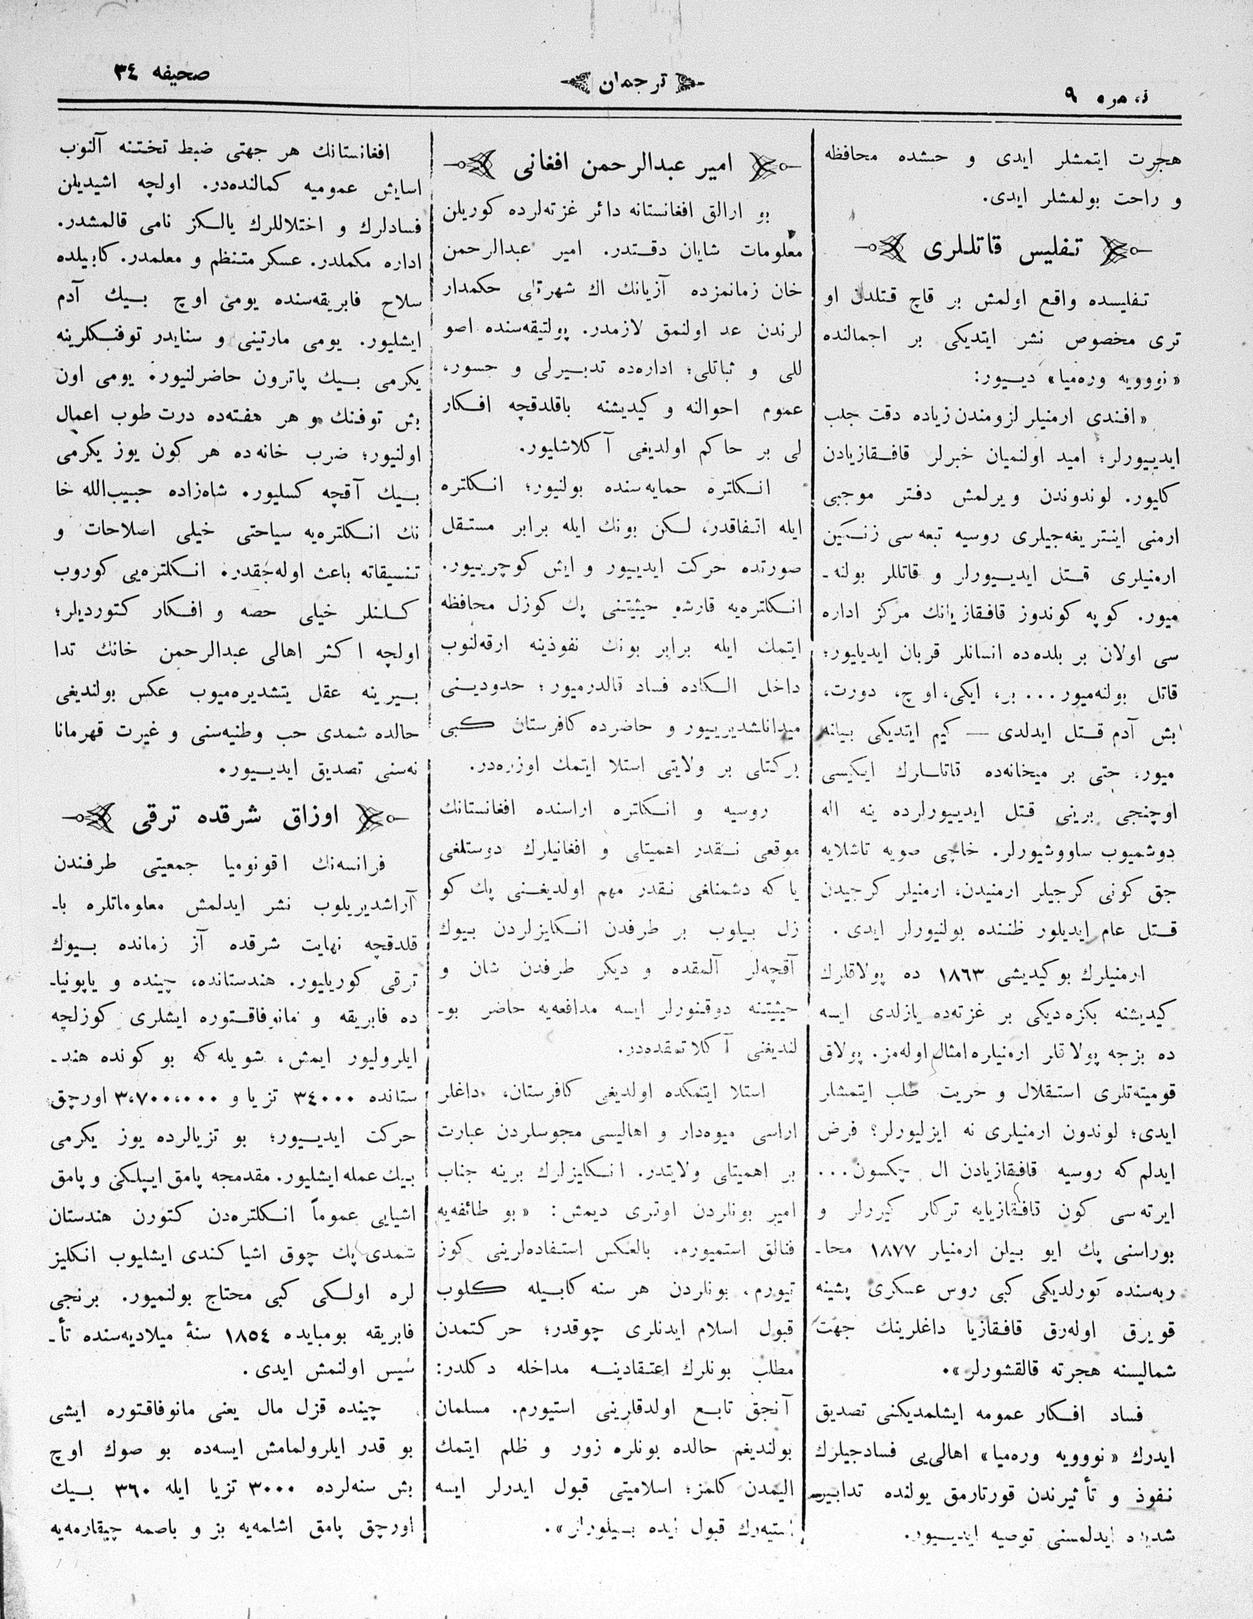 نومره ٩
ترجمان
صحیفه ٣٤
هجرت ایتمشلر ایدی و حسده محافظه
و راحت بولمشلر ایدی.
تفلیس قاتللری
تفلیسده واقع اولمش بر قاچ قتلدن او
تری مخصوص نشر ایتدیکی بر اجمالنده
«نوویه ورەمیا» دییور:
«افندی ارمنیلر لزومندن زیاده دقت جلب
ایدییورلر؛ امید اولنمیان خبرلر قافقازیادن
کلیور. لوندوندن ویرلمش دفتر موجبی
ارمنی اینتریغه‌جیلری روسیه تبعه‌سی زنکین
ارمنیلری قتل ایدییورلر و قاتللر بولنه‌ـ
میور. کوپه کوندوز قافقازیانك مرکز اداره
سی اولان بر بلده‌ده انسانلر قربان ایدیلیور؛
قاتل بولنه‌میور... بر، ایکی، اوچ، دورت،
بش آدم قتل ایدلدی — کیم ایتدیکی بیلنه
میور، حتی بر میخانه‌ده قاتلرك ایکیسی
اوچنجی برینی قتل ایدییورلرده ینه اله
دوشمیوب ساووشیورلر. خاچی صویه تاشلایه
جق کونی کرجیلر ارمنیدن، ارمنیلر کرجیدن
قتل عام ایدیلور ظننده بولنیورلر ایدی.
ارمنیلرك بو کیدیشی ١٨٦٣ ده پولاقلرك
کیدیشنه بکزه‌دیکی بر غزته‌ده یازلدی ایسه
ده بزجه پولاقلر ارمنیلره امثال اوله‌مز. پولاق
قومیته‌تلری استقلال و حریت طلب ایتمشلر
ایدی؛ لوندون ارمنیلری نه ایزلیورلر؟ فرض
ایدلم که روسیه قافقازیادن ال چکسون...
ایرته‌سی کون قافقازیایه ترکلر کیررلر و
بوراسنی پك ایو بیلن ارمنیلر ١٨٧٧ محاـ
ربه‌سنده کورلدیکی کبی روس عسکری پشینه
قویرق اوله‌رق قافقازیا داغلرینك جهت
شمالیسنه هجرته قالقشورلر».
فساد افکار عمومه ایشلمدیکنی تصدیق
ایدرك «نوویه ورەمیا» اهالی‌یی فسادجیلرك
نفوذ و تأثیرندن قورتارمق یولنده تدابیر
شدیده ایدلمسنی توصیه ایدییور.
امیر عبدالرحمن افغانی
بو ارالق افغانستانه دائر غزته‌لرده کوریلن
معلومات شایان دقتدر. امیر عبدالرحمن
خان زمانمزده آزیانك اك شهرتلی حکمدار
لرندن عد اولنمق لازمدر. پولتیقه‌سنده اصو
للی و ثباتلی؛ اداره‌ده تدبیرلی و جسور،
عموم احوالنه و کیدیشنه باقلدقچه افکار
لی بر حاکم اولدیغی آکلاشلیور.
انکلتره حمایه‌سنده بولنیور؛ انکلتره
ایله اتفاقدر، لکن بونك ایله برابر مستقل
صورتده حرکت ایدییور و ایش کوچرییور.
انکلتره‌یه قارشو حیثیتنی پك کوزل محافظه
ایتمك ایله برابر بونك نفوذینه ارقه‌لنوب
داخل الکاده فساد قالدرمیور؛ حدودینی
میدانلشدیرییور و حاضرده کافرستان کبی
برکتلی بر ولایتی استلا ایتمك اوزره‌در.
روسیه و انکلتره اراسنده افغانستانك
موقعی نقدر اهمیتلی و افغانیلرك دوستلغی
یا که دشمنلغی نقدر مهم اولدیغنی پك کو
زل بیلوب بر طرفدن انکلیزلردن بیوك
آقچه‌لر آلمقده و دیکر طرفدن شان و
حیثیتنه دوقنورلر ایسه مدافعه‌یه حاضر بوـ
لندیغنی آکلاتمقده‌در.
استلا ایتمکده اولدیغی کافرستان، داغلر
اراسی میوه‌دار و اهالیسی مجوسلردن عبارت
بر اهمیتلی ولایتدر. انکلیزلرك برینه جناب
امیر بونلردن اوتری دیمش: «بو طائفه‌یه
فنالق استمیورم. بالعکس استفاده‌لرینی کوز
تیورم. بونلردن هر سنه کابیله کلوب
قبول اسلام ایدنلری چوقدر؛ حرکتمدن
مطلب بونلرك اعتقادینه مداخله دکلدر:
آنجق تابع اولدقلرینی استیورم. مسلمان
بولندیغم حالده بونلره زور و ظلم ایتمك
الیمدن کلمز؛ اسلامیتی قبول ایدرلر ایسه
استیه‌رك قبول ایده بیلورلر».
افغانستانك هر جهتی ضبط تختنه آلنوب
اسایش عمومیه کمالنده‌در. اولجه اشیدیلن
فسادلرك و اختلاللرك یالکز نامی قالمشدر.
اداره مکملدر. عسکر متنظم و معلمدر. کابیلده
سلاح فابریقه‌سنده یومی اوچ بیك آدم
ایشلیور. یومی مارتینی و سنایدر توفنکلرینه
یکرمی بیك پاترون حاضرلنیور. یومی اون
بش توفنك و هر هفته‌ده درت طوب اعمال
اولنیور؛ ضرب خانه ده هر کون یوز یکرمی
بیك آقچه کسلیور. شاه‌زاده حبیب‌الله خا
نك انکلتره‌یه سیاحتی خیلی اصلاحات و
تنسیقاته باعث اوله‌جقدر. انکلتره‌یی کوروب
کلنلر خیلی حصه و افکار کتوردیلر؛
اولجه اکثر اهالی عبدالرحمن خانك تدا
بیرینه عقل یتشدیره‌میوب عکس بولندیغی
حالده شمدی حب وطنیه‌سنی و غیرت قهرمانا
نه‌سنی تصدیق ایدییور.
اوزاق شرقده ترقی
فرانسه‌نك اقونومیا جمعیتی طرفندن
آراشدیریلوب نشر ایدلمش معلوماتلره باـ
قلدقچه نهایت شرقده آز زمانده بیوك
ترقی کوریلیور. هندستانده، چینده و یاپونیاـ
ده فابریقه و مانوفاقتوره ایشلری کوزلچه
ایلرولیور ایمش، شویله که بو کونده هندـ
ستانده ٣٤٠٠٠ تزیا و ٣،٧٠٠،٠٠٠ اورچق
حرکت ایدییور؛ بو تزیالرده یوز یکرمی
بیك عمله ایشلیور. مقدمجه پامق ایپلکی و پامق
اشیایی عموماً انکلتره‌دن کتورن هندستان
شمدی پك چوق اشیا کندی ایشلیوب انکلیز
لره اولکی کبی محتاج بولنمیور. برنجی
فابریقه بومبایده ١٨٥٤ سنۀ میلادیه‌سنده تأـ
سیس اولنمش ایدی.
چینده قزل مال یعنی مانوفاقتوره ایشی
بو قدر ایلرولمامش ایسه‌ده بو صوك اوچ
بش سنه‌لرده ٣٠٠٠ تزیا ایله ٣٦٠ بیك
اورچق پامق اشلمه‌یه بز و باصمه چیقارمه‌یه